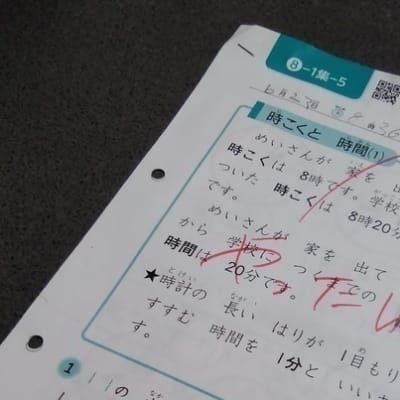 8-1集-5
6月23日
時こくと 時間(1)
めいさんが 家を 出
時こくは 8時です。学校
ついた 時こくは 8時20分
です。
めいさんが 家を 出て
から 学校に つくまでの
時間は 20分です。
★時計の 長い はりが 1目もり
すすむ 時間を 1分と いいま
す。
1